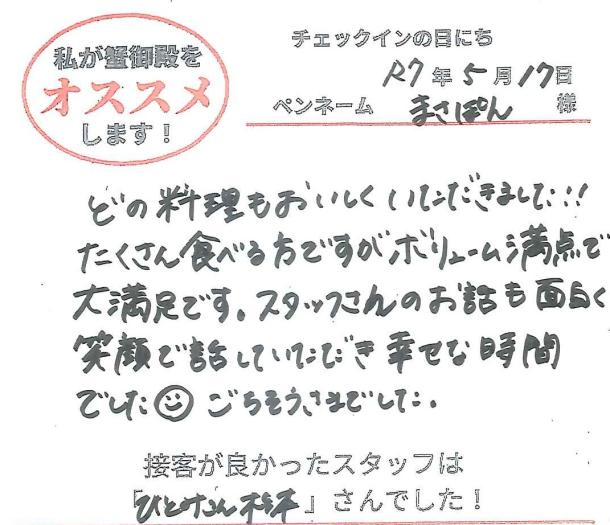 私が蟹御殿を
オススメ
します！
チェックインの日にち
R7年5月17日
ペンネーム まさぽん 様
どの料理もおいしくいただきました!!!
たくさん食べる方ですがボリューム満点で
大満足です。スタッフさんのお話も面白く
笑顔で話していただき幸せな時間
でした☺ ごちそうさまでした。
接客が良かったスタッフは
「ひとみさん 」さんでした！